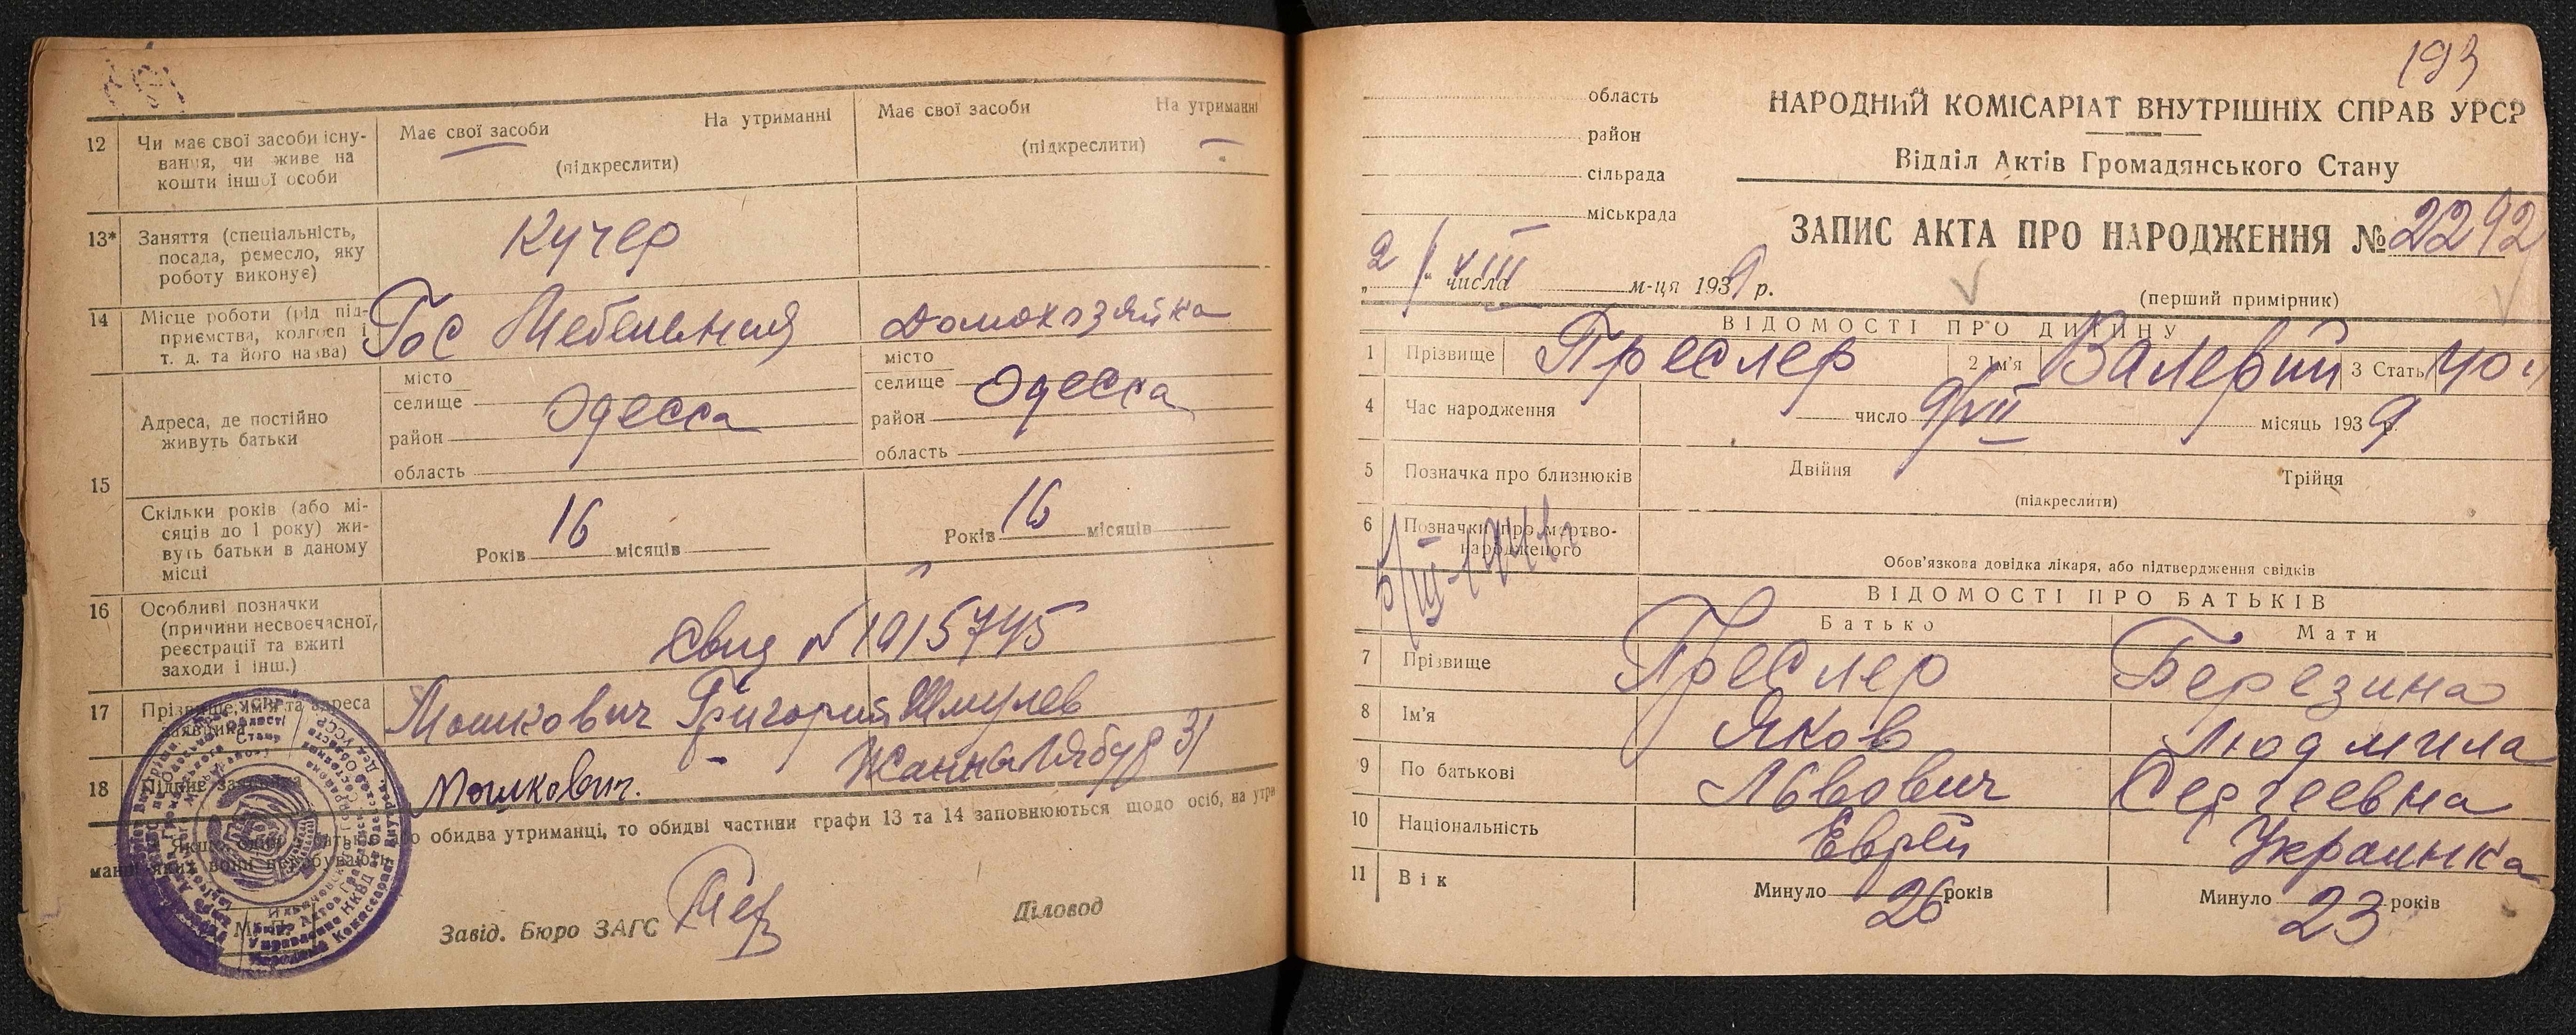 12 Чи має свої засоби існу-
вання, чи живе на
кошти іншої особи
Має свої засоби На утриманні
(підкреслити)
Має свої засоби На утриманні
(підкреслити)
13* Заняття (спеціальність,
посада, ремесло, яку
роботу виконує)
Кучер
14 Місце роботи (рід під-
приємства, колгосп і
т. д. та його назва)
Гос Мебельния
Домохозяйка
15 Адреса, де постійно
живуть батьки
місто
селище
район
область
Одесса
місто
селище
район
область
Одесса
Скільки років (або мі-
сяців до 1 року) жи-
вуть батьки в даному
місці
Років 16 місяців
Років 16 місяців
16 Особливі позначки
(причини несвоєчасної,
реєстрації та вжиті
заходи і інш.)
Свид №1915745
17 Прізвище, ім'я та адреса
заявника
Мошкович Григорий Шмулев
Жанна Лябур 31
18 Підпис заявника
Мошкович.
обидва утриманці, то обидві частини графи 13 та 14 заповнюються щодо осіб, на утри
манні яких вони перебувають
М. П.
Завід. Бюро ЗАГС
Діловод
193
область
район
сільрада
міськрада
НАРОДНИЙ КОМІСАРІАТ ВНУТРІШНІХ СПРАВ УРСР
Відділ Актів Громадянського Стану
ЗАПИС АКТА ПРО НАРОДЖЕННЯ № 2292
2/VIII
„ " числа м-ця 1939 р.
(перший примірник)
ВІДОМОСТІ ПРО ДИТИНУ
1 Прізвище Преслер 2 Ім'я Валерий 3 Стать
4 Час народження число 9/VII місяць 1939 р.
5 Позначка про близнюків Двійня Трійня
(підкреслити)
6 Позначки про мертво-
народженого
5/III-1941г.
Обов'язкова довідка лікаря, або підтвердження свідків
ВІДОМОСТІ ПРО БАТЬКІВ
Батько Мати
7 Прізвище Преслер Березина
8 Ім'я Яков Людмила
9 По батькові Львович Сергеевна
10 Національність Еврей Украинка
11 Вік Минуло 26 років Минуло 23 років